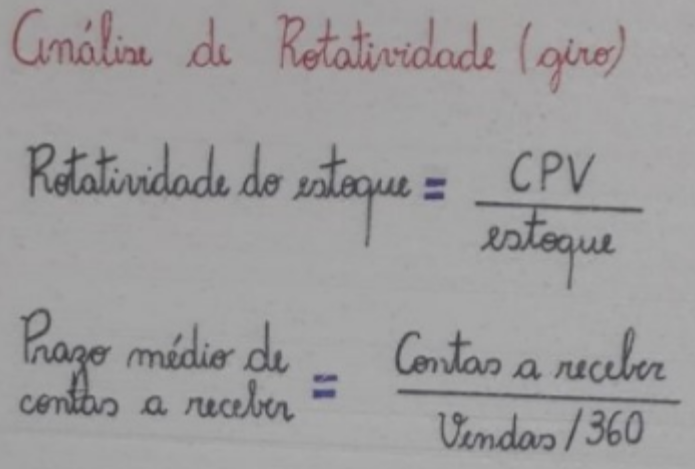 Análise de Rotatividade (giro)
Rotatividade do estoque = CPV
estoque
Prazo médio de
contas a receber = Contas a receber
Vendas / 360